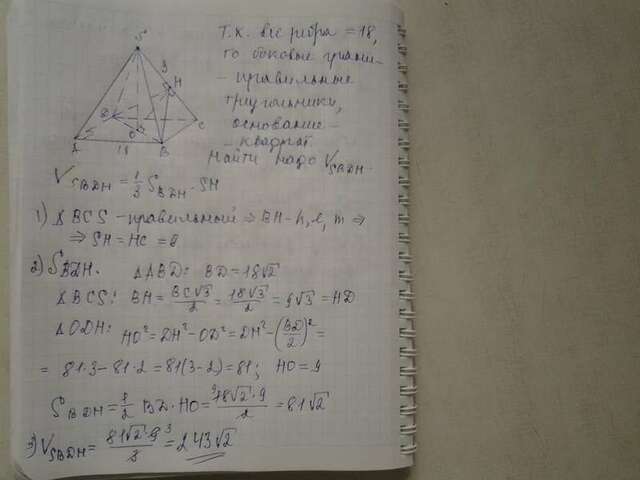 Т.к. все ребра = 18,
то боковые грани -
- правильные
треугольники,
основание -
- квадрат
Найти надо V_SBDH.
S
9
H
D
C
O
A
18
B
V_SBDH = 1/3 S_BDH · SH
1) Δ BCS - правильный ⇒ BH - h, l, m ⇒
⇒ SH = HC = 9
2) S_BDH. ΔABD: BD = 18√2
Δ BCS: BH = BC√3/2 = 18√3/2 = 9√3 = HD
Δ ODH: HO² = DH² - OD² = DH² - (BD/2)² =
= 81·3 - 81·2 = 81(3-2) = 81; HO = 9
S_BDH = 1/2 BD·HO = 18√2·9/2 = 81√2
3) V_SBDH = 81√2·9/3 = 243√2